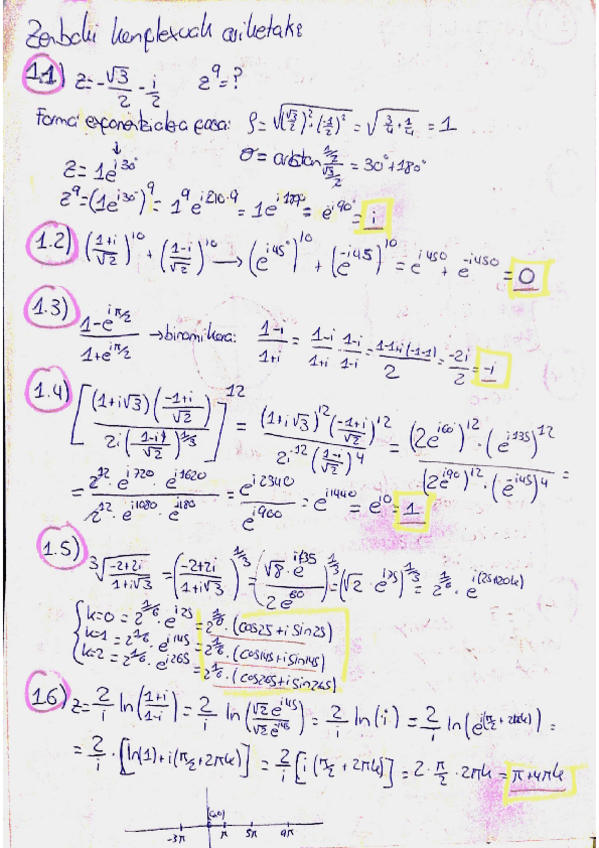 Zenbaki konplexuak ariketak:
1.1) z = -√3/2 - i/2    z⁹ = ?
Forma exponentzialera pasa: ρ = √((√3/2)² + (-1/2)²) = √(3/4 + 1/4) = 1
↓ σ = arctan (1/2)/(√3/2) = 30° + 180°
z = 1e^(i30°)
z⁹ = (1e^(i30°))⁹ = 1⁹ e^(i210·9) = 1e^(i1890) = e^(i90°) = i
1.2) ((1+i)/√2)¹⁰ + ((1-i)/√2)¹⁰ → (e^(i45°))¹⁰ + (e^(-i45))¹⁰ = e^(i450) + e^(-i450) = 0
1.3) (1-e^(iπ/2))/(1+e^(iπ/2)) → binomikora: (1-i)/(1+i) = (1-i)/(1+i) · (1-i)/(1-i) = (1-1+i(-1-1))/2 = -2i/2 = -i
1.4) [((1+i√3)((-1+i)/√2))/(2i((1-i)/√2)^(1/3))]¹² = ((1+i√3)¹²((-1+i)/√2)¹²)/(2i¹²((1-i)/√2)⁴) = ((2e^(i60))¹² · (e^(i135))¹²)/((2e^(i90))¹² · (e^(-i45))⁴) =
= (2¹² · e^(i720) · e^(i1620))/(2¹² · e^(i1080) · e^(i180)) = e^(i2340)/e^(i900) = e^(i1440) = e^(i0) = 1
1.5) ³√((-2+2i)/(1+i√3)) = ((-2+2i)/(1+i√3))^(1/3) = ((√8 · e^(i135))/(2e^(60)))^(1/3) = (√2 · e^(i75))^(1/3) = 2^(1/6) · e^(i(25+120k))
k=0 = 2^(1/6) · e^(i25) = 2^(1/6) · (cos25 + i sin25)
k=1 = 2^(1/6) · e^(i145) = 2^(1/6) · (cos145 + i sin145)
k=2 = 2^(1/6) · e^(i265) = 2^(1/6) · (cos265 + i sin265)
1.6) z = 2/i ln((1+i)/(1-i)) = 2/i ln((√2 e^(i45))/(√2 e^(-i45))) = 2/i ln(i) = 2/i ln(e^(i(π/2+2πk))) =
= 2/i · [ln(1) + i(π/2 + 2πk)] = 2/i [i(π/2 + 2πk)] = 2 · π/2 · 2πk = π + 4πk
(0,0)
-3π π 5π 9π